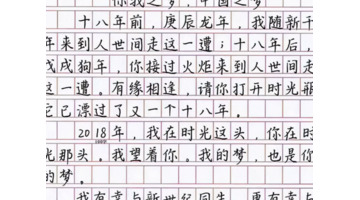 你我之梦，中国之梦
十八年前，庚辰龙年，我随新千
年来到人世间走这一遭；十八年后，
戊戌狗年，你接过火炬来到人世间走
这一遭。有缘相逢，请你打开时光瓶，
它已漂过了又一个十八年。
2018年，我在时光这头，你在时
光那头。我望着你。我的梦，也是你
的梦。
我有幸与新世纪同生，更有幸与